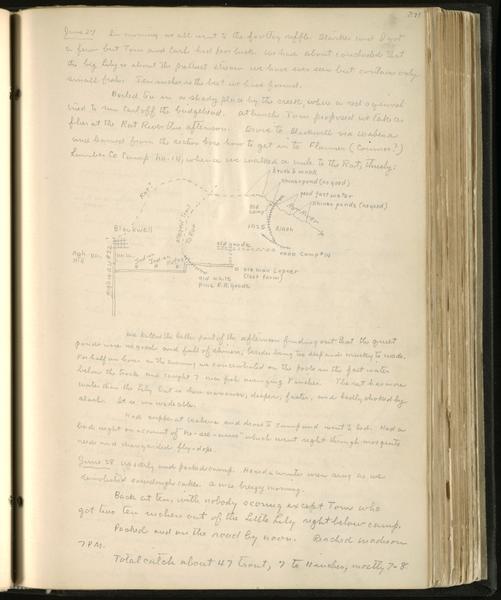 June 27 In morning we all went to the
a few but Tom and Carl had poor luck. We have about concluded that
the big Lily is about the prettiest stream we have ever seen but contains only
small fish. Ten inches is the best we have found.
Boiled tea in a shady place by the creek, where a red squirrel
tried to run Carl off the
flies at the Rat River this afternoon. Drove to Blackwell via Wabeno
and learned from the section boss how to get in to Flanner (Connor?)
Lumber Co Camp No. 14, whence we walked a mile to the Rat, thusly:
brush & muck
shiner pond (no good)
good fast water
shiner ponds (no good)
Rat River
Rat
Old Camp
1925
Slash
Camp #14
Blackwell
old grade
Indian
old man
(last farm)
old white pine R.R. grade
We killed the better part of the afternoon finding out that the quiet
ponds were no good and full of shiners, besides being too deep and mucky to wade.
For half an hour in the evening we concentrated on the pools in the fast water
below the track and caught 7 nice fish averaging 9 inches. The Rat has more
water than the Lily but is also narrower, deeper, faster, and badly choked by
slash. It is unwadeable.
Had supper at Wabeno and drove to camp and went to bed. Had a
bad night on account of "no-see-ums" which went right through mosquito
nets and disregarded fly-dope.
June 28 Up early and packed camp. Heard a winter wren sing as we
demolished sourdough cakes. A nice breezy morning.
Back at ten, with nobody scoring except Tom who
got two ten inchers out of the Little Lily right below camp.
Packed and on the road by noon. Reached Madison
7 PM.
Total catch about 47 trout, 7 to 11 inches, mostly 7-8.